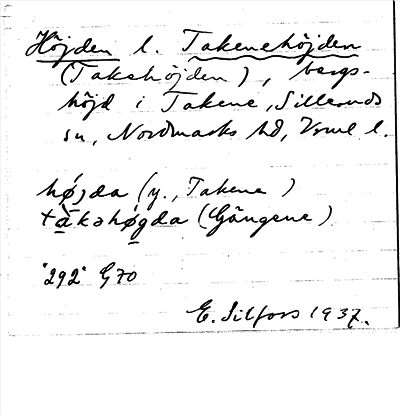 Höjden l. Takenehöjden
(Takehöjden), bergs-
höjd i Takene, Silleruds
sn, Nordmarks hd, Vrml l.
højda (y., Takene)
+àkəhøgda (Gängene)
"292" G70
E. Silfors 1937.